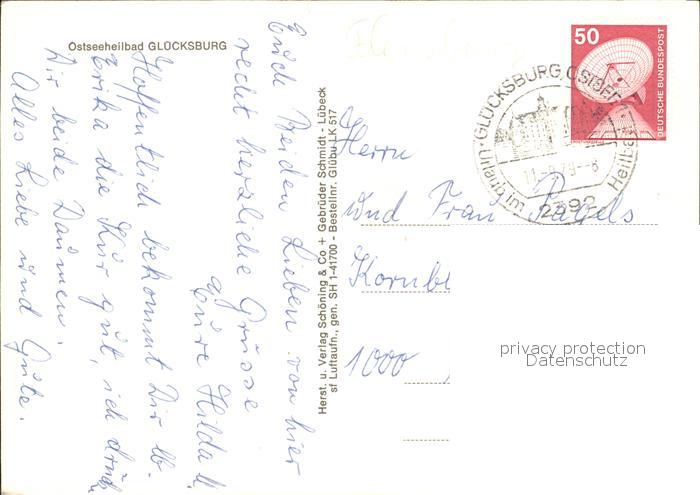 Ostseeheilbad GLÜCKSBURG
Euch Beiden Lieben von hier
recht herzliche Grüsse
Eure Hilda
Hoffentlich bekommt Dir lb.
Erika die Kur gut, ich drück
Dir beide Daumen.
Alles Liebe und Gute.
Herst. u. Verlag Schöning & Co + Gebrüder Schmidt - Lübeck
sf Luftaufn., gen. SH 1-41700 - Bestellnr. Glübu LK 517
50
DEUTSCHE BUNDESPOST
GLÜCKSBURG, OSTSEE
Urlaub im Heilbad
2392
Herrn
und Frau Pagels
1000
privacy protection
Datenschutz